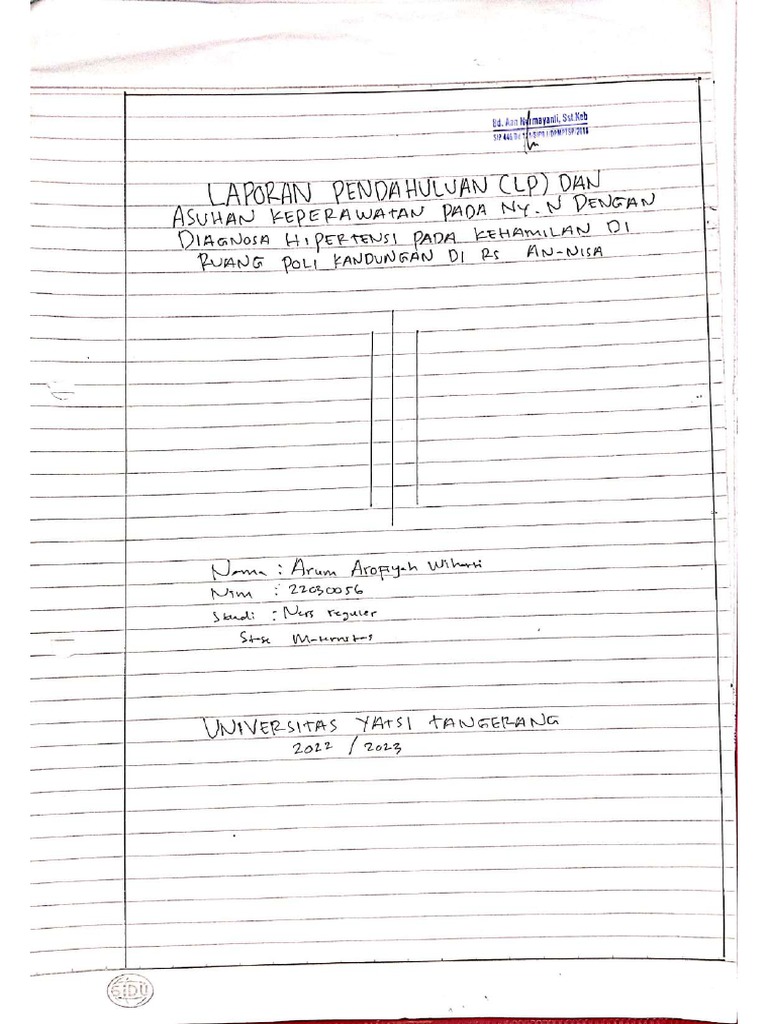 Bd. Aan Nurmayanti, Sst.Keb
LAPORAN PENDAHULUAN (LP) DAN
ASUHAN KEPERAWATAN PADA NY. N DENGAN
DIAGNOSA HIPERTENSI PADA KEHAMILAN DI
RUANG POLI KANDUNGAN DI RS AN-NISA
Nama : Arum Arofiyah
Nim : 22030056
: Ners reguler
Stase Maternitas
UNIVERSITAS YATSI TANGERANG
2022 / 2023
SIDU